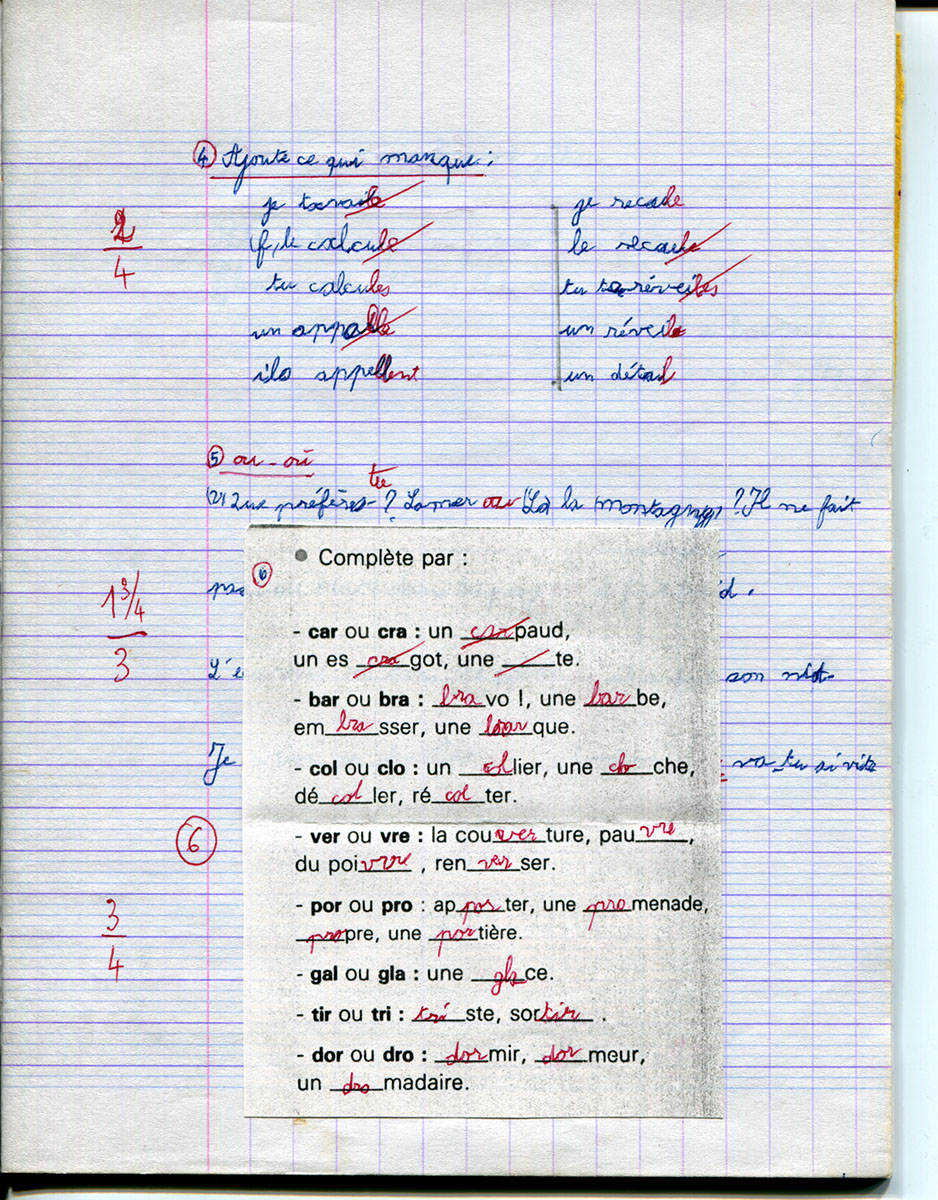 ④ Ajoute ce qui manque :
je travaile je recaele
il calcule le recaele
2/4
tu calcules tu te réveiles
un appalle un réveil
ils appellent un détail
⑤ ou - où
tu
(2) Que préfères - ? La mer ou la montagne ? Il ne fait
● Complète par :
⑥
pas d.
1 3/4
3
- car ou cra : un car paud,
un es cra got, une ___ te.
L'é son nid.
- bar ou bra : bra vo !, une bar be,
em bra sser, une bar que.
Je va-tu si vite
- col ou clo : un col lier, une clo che,
dé col ler, ré col ter.
⑥
- ver ou vre : la cou ver ture, pau vre,
du poi vre , ren ver ser.
3/4
- por ou pro : ap por ter, une pro menade,
pro pre, une por tière.
- gal ou gla : une gla ce.
- tir ou tri : tri ste, sor tir .
- dor ou dro : dor mir, dor meur,
un dro madaire.